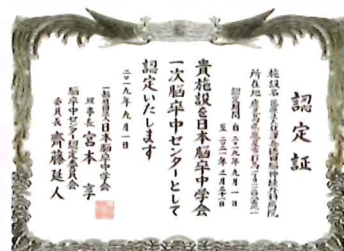 認定証
認定期間 自 二〇一九年九月一日
貴施設を日本脳卒中学会
一次脳卒中センターとして
認定いたします
二〇一九年九月一日
一般社団法人日本脳卒中学会
理事長 宮本 享
脳卒中センター認定委員会
委員長 齊藤延人